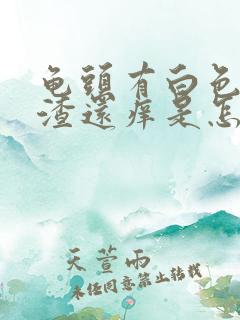 龟头有白色
渣还痒是怎
天萱雨
未经同意禁止转载